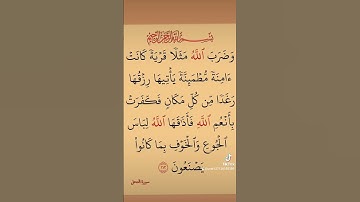 بِسْمِ اللَّهِ الرَّحْمَٰنِ الرَّحِيمِ
وَضَرَبَ ٱللَّهُ مَثَلًا قَرْيَةً كَانَتْ
ءَامِنَةً مُّطْمَئِنَّةً يَأْتِيهَا رِزْقُهَا
رَغَدًا مِّن كُلِّ مَكَانٍ فَكَفَرَتْ
بِأَنْعُمِ ٱللَّهِ فَأَذَٰقَهَا ٱللَّهُ لِبَاسَ
ٱلْجُوعِ وَٱلْخَوْفِ بِمَا كَانُوا۟
يَصْنَعُونَ